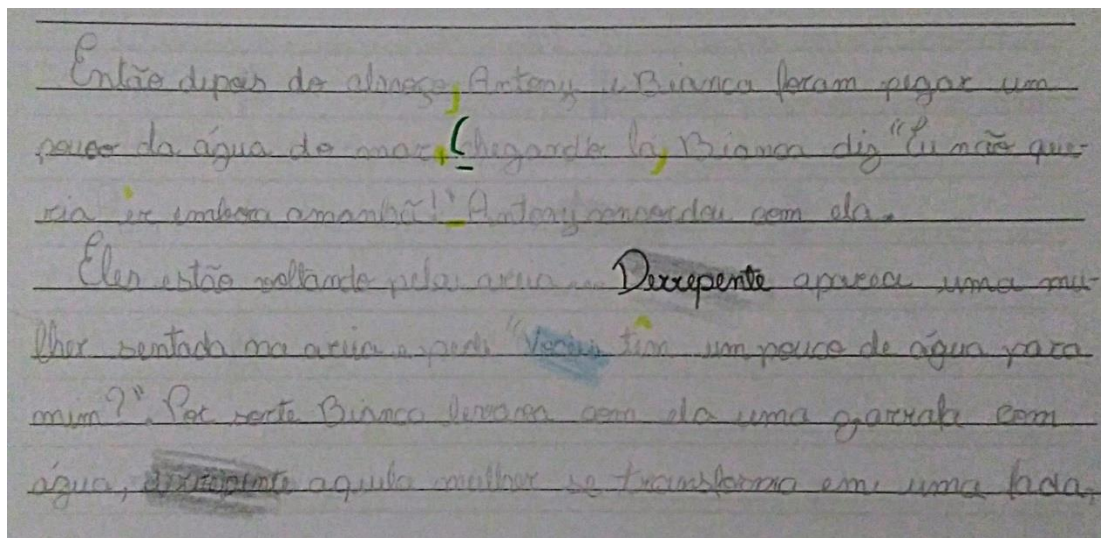 Então depois do almoço, Antony e Bianca foram pegar um
pouco da água do mar, Chegando lá, Bianca diz "Eu não que-
ria ir embora amanhã!" Antony concordou com ela.
Eles estão voltando pela areia... Derrepente aparece uma mu-
lher sentada na areia e pedi "Vocês têm um pouco de água para
mim?". Por sorte Bianca levava com ela uma garrafa com
água, derrepente aquela mulher se transforma em uma fada,